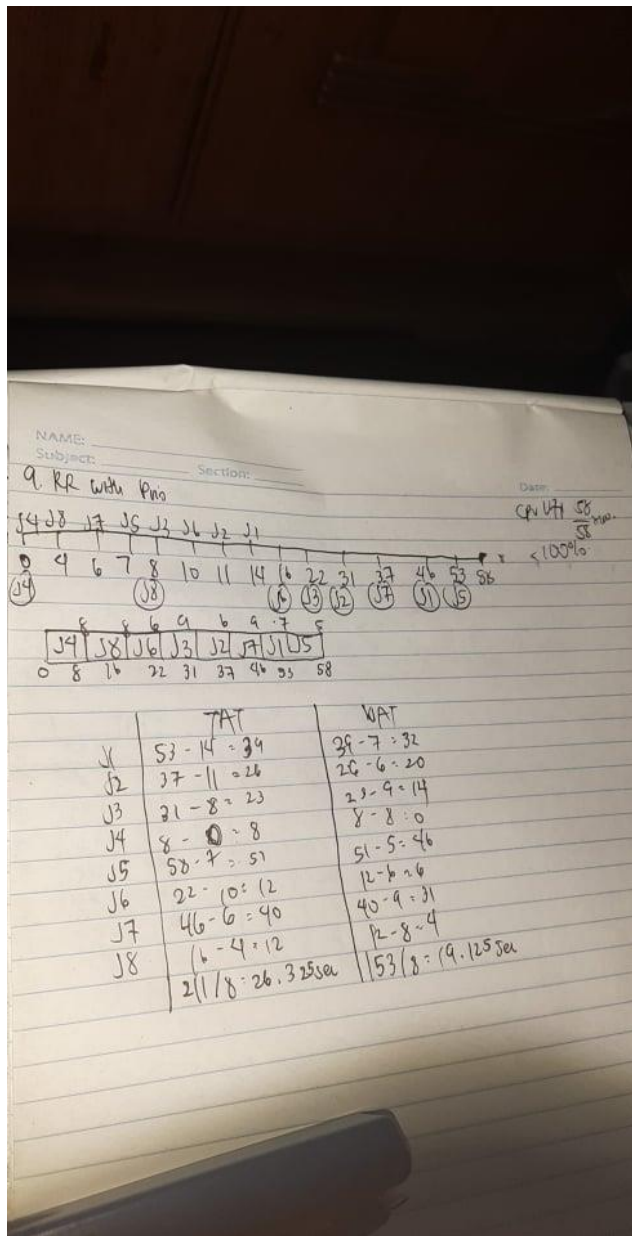 NAME:
Subject: Section: Date:
9. RR with Prio
CPU Utz 58
58
=100%
J4 J8 J7 J5 J3 J6 J2 J1
0 4 6 7 8 10 11 14 16 22 31 37 46 53 58
J4 J8 J6 J3 J2 J7 J1 J5
8 8 6 9 6 9 7 5
J4 J8 J6 J3 J2 J7 J1 J5
0 8 16 22 31 37 46 53 58
TAT WAT
J1 53 - 14 = 39 39 - 7 = 32
J2 37 - 11 = 26 26 - 6 = 20
J3 31 - 8 = 23 23 - 9 = 14
J4 8 - 0 = 8 8 - 8 = 0
J5 58 - 7 = 51 51 - 5 = 46
J6 22 - 10 = 12 12 - 6 = 6
J7 46 - 6 = 40 40 - 9 = 31
J8 16 - 4 = 12 12 - 8 = 4
211 / 8 = 26.325 sec 153 / 8 = 19.125 sec